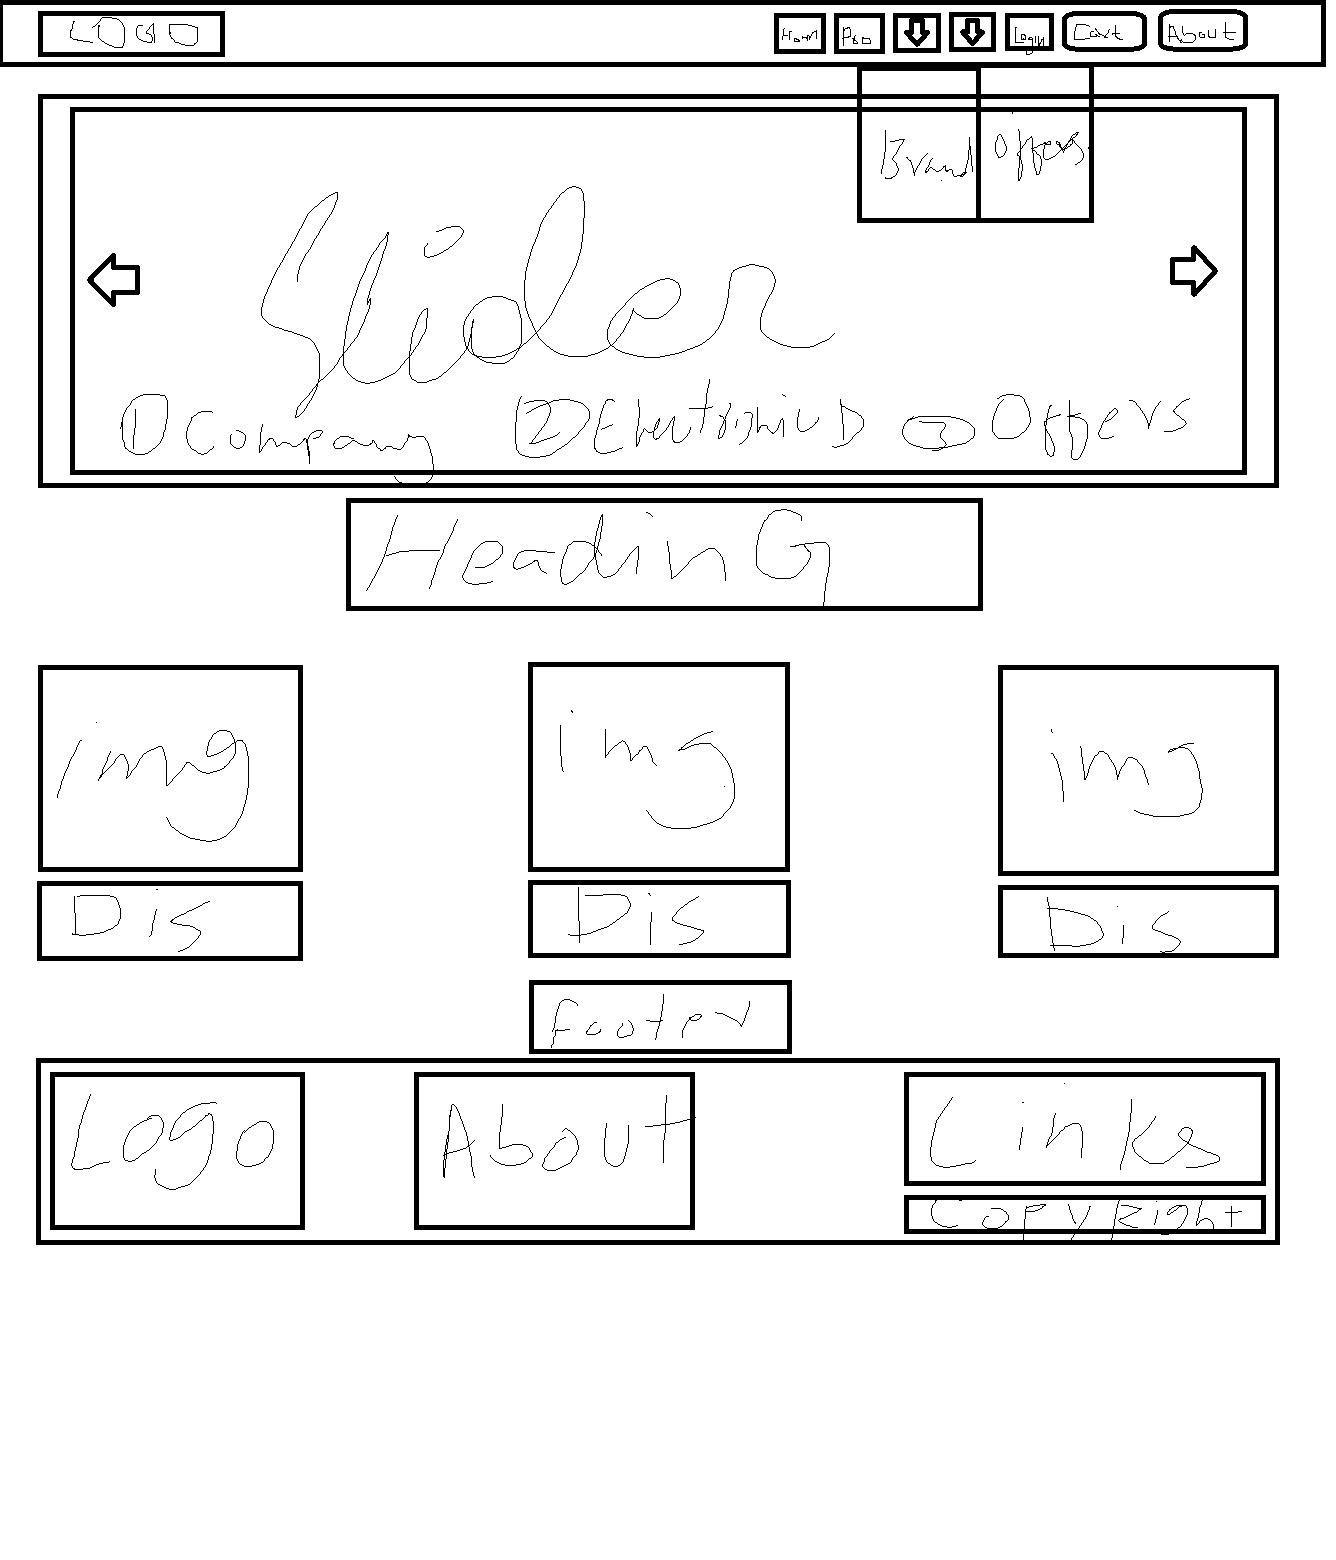 LOGO Hom Pro Login Cart About
Brand Offers
Slider
1 Company 2 3 Offers
HeadinG
img img img
Dis Dis Dis
Footer
Logo About Links
CopyRight